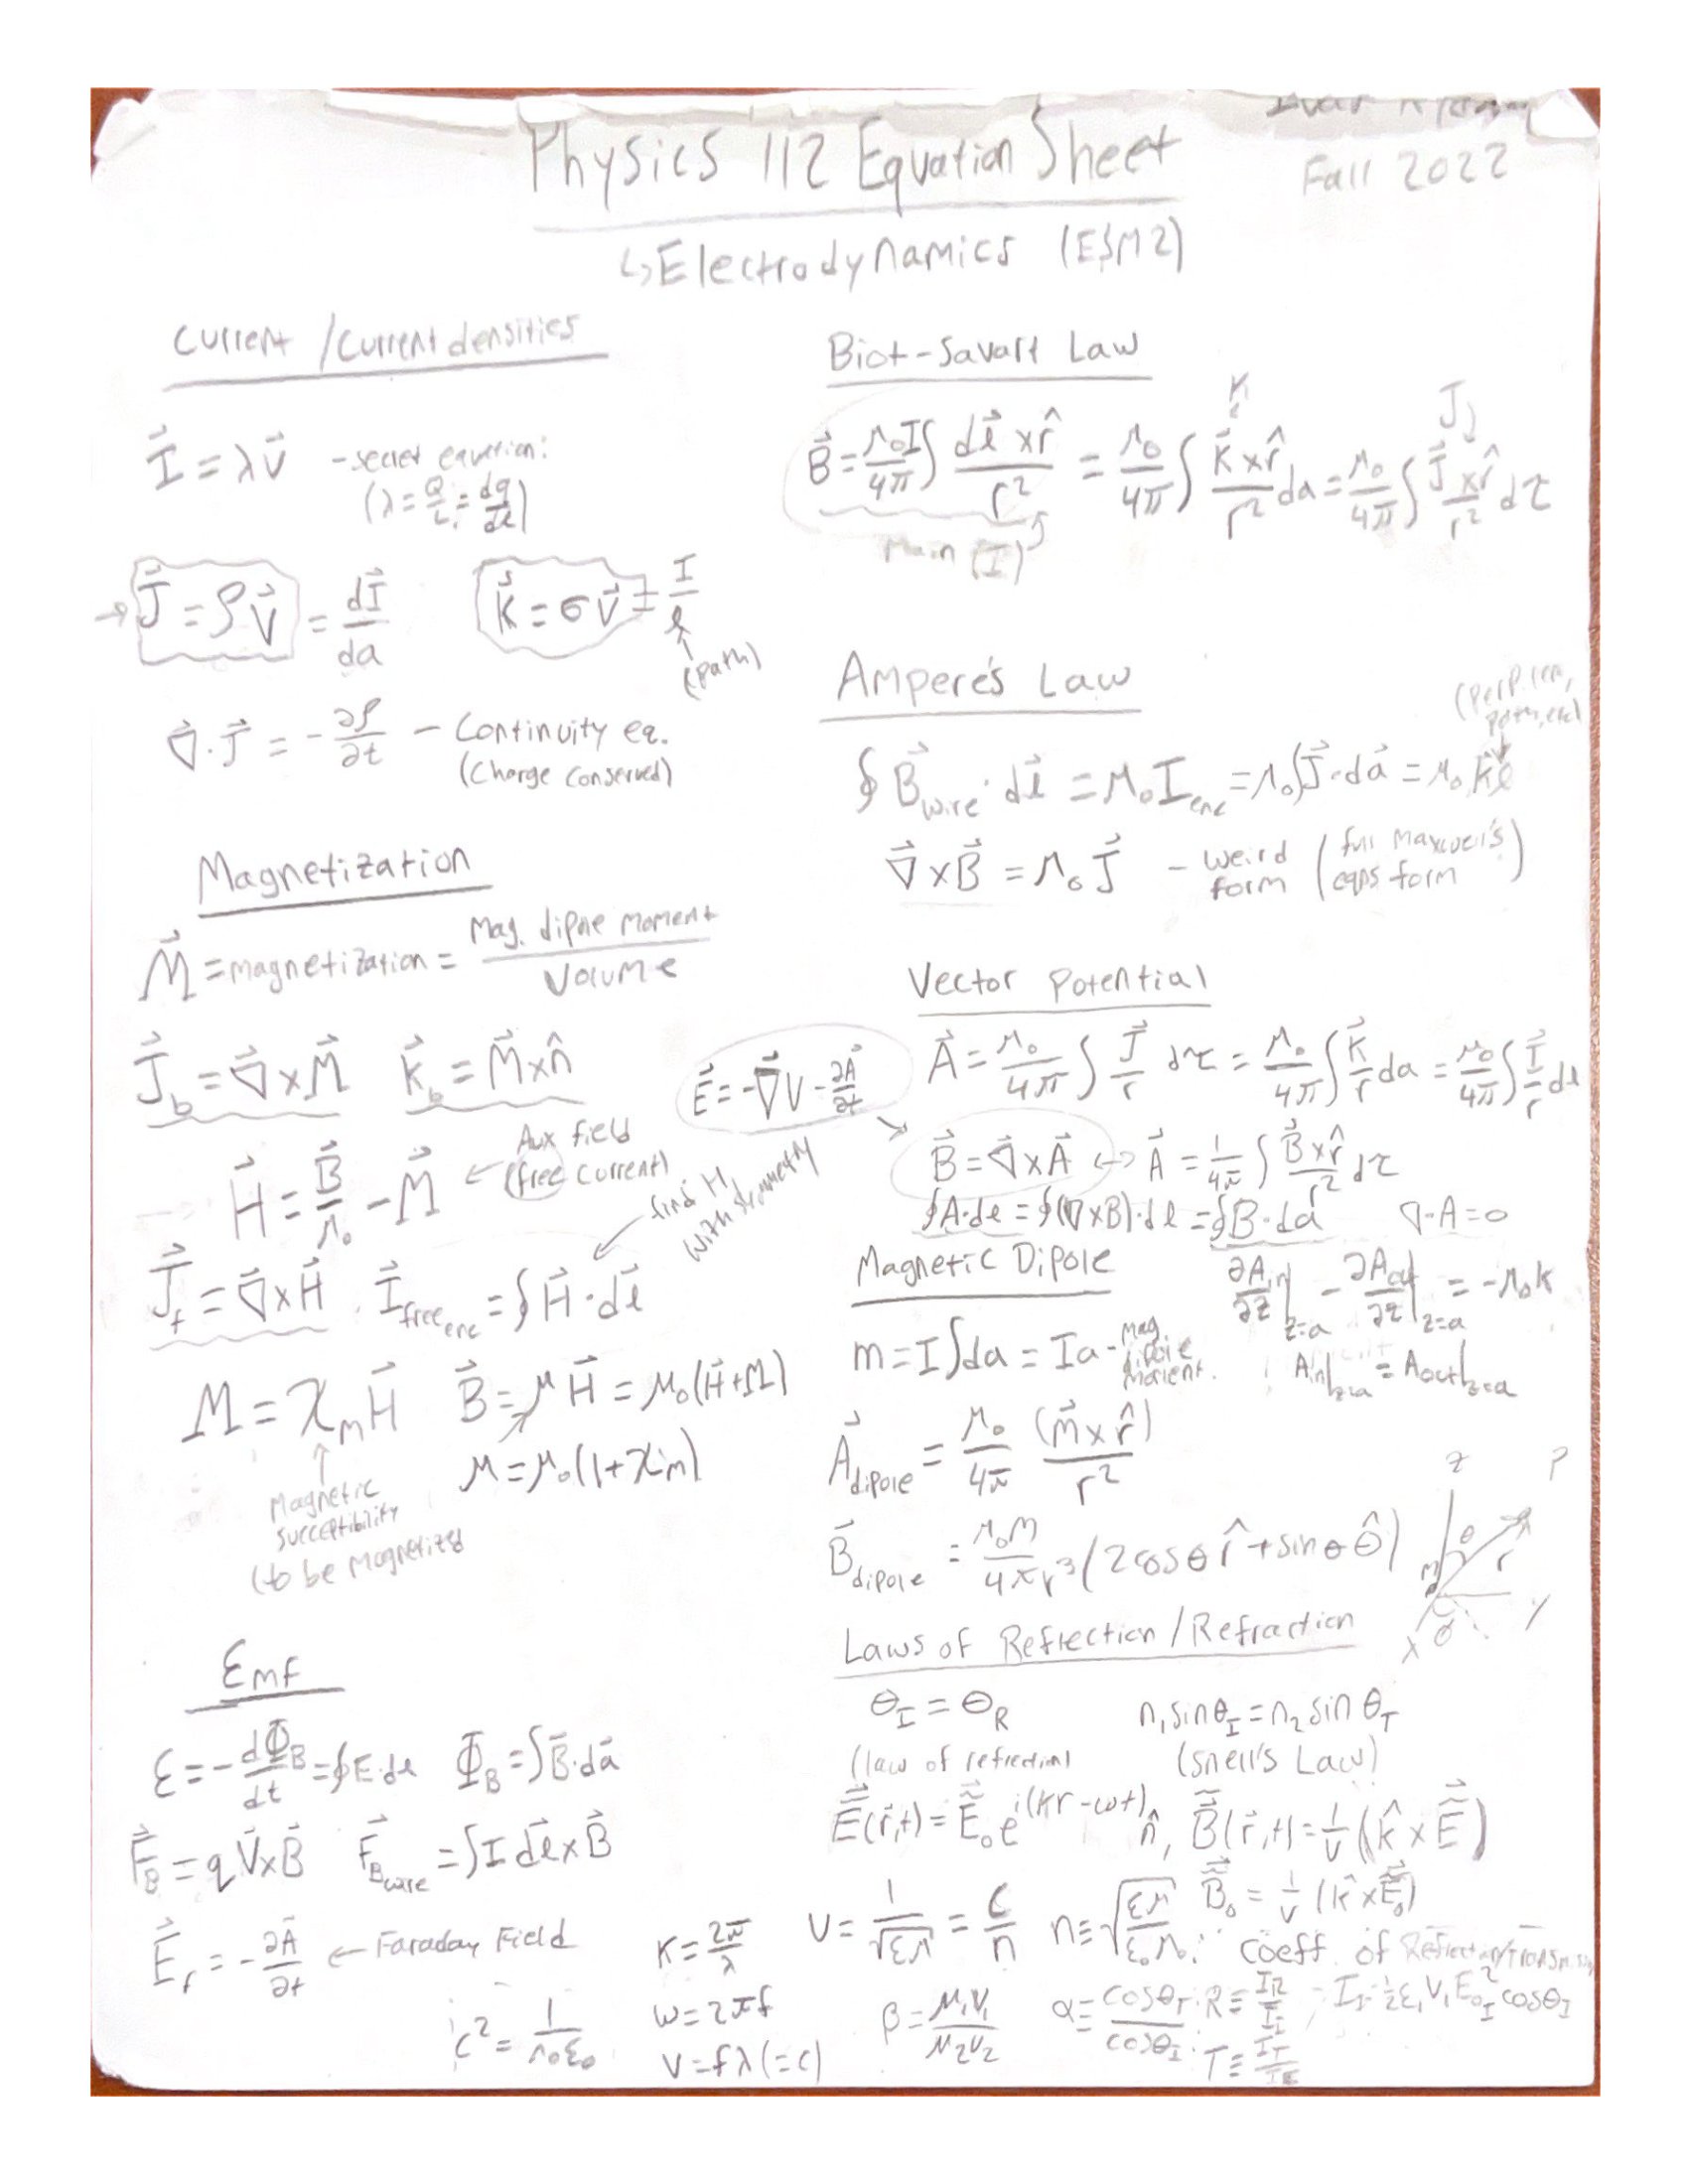 Physics 112 Equation Sheet
Fall 2022
↳ Electrodynamics (E&M 2)
Current / Current densities
I⃗ = λv⃗ - secret equation:
(λ = Q/L = dq/dl)
→ J⃗ = ρv⃗ = dI⃗/da
K⃗ = σv⃗ = I/l
(path)
∇⃗·J⃗ = -∂ρ/∂t - Continuity eq.
(Charge conserved)
Magnetization
M⃗ = magnetization = Mag. dipole moment / Volume
J⃗_b = ∇⃗×M⃗ K⃗_b = M⃗×n̂
H⃗ = B⃗/μ₀ - M⃗ ← Aux field
(free current)
find H, with symmetry
J⃗_f = ∇⃗×H⃗ I⃗_free enc = ∮H⃗·dl⃗
M = χ_m H⃗ B⃗ = μH⃗ = μ₀(H⃗+M)
μ = μ₀(1+χ_m)
Magnetic
susceptibility
(to be magnetized
Emf
ε = -dΦ_B/dt = ∮E·dl Φ_B = ∫B⃗·da⃗
F⃗_B = qV⃗×B⃗ F⃗_B wire = ∫I dl⃗×B⃗
E⃗_f = -∂A⃗/∂t ← Faraday Field
c² = 1/μ₀ε₀
K = 2π/λ
ω = 2πf
v = fλ (=c)
Biot-Savart Law
K J
B⃗ = μ₀I/4π ∫ dl⃗×r̂/r² = μ₀/4π ∫ K⃗×r̂/r² da = μ₀/4π ∫ J⃗×r̂/r² dτ
Main (I)
Ampere's Law
∮B⃗_wire·dl⃗ = μ₀I_enc = μ₀∫J⃗·da⃗ = μ₀K⃗l
∇⃗×B⃗ = μ₀J⃗ - weird form (full Maxwell's eqns form)
Vector Potential
E⃗ = -∇⃗V - ∂A⃗/∂t
A⃗ = μ₀/4π ∫ J⃗/r dτ = μ₀/4π ∫ K⃗/r da = μ₀/4π ∫ I⃗/r dl
B⃗ = ∇⃗×A⃗ ↔ A⃗ = 1/4π ∫ B⃗×r̂/r² dτ
∮A·dl = ∮(∇×B)·dl = ∮B·da ∇·A = 0
∂A_in/∂z|z=a - ∂A_out/∂z|z=a = -μ₀K
A_in|z=a = A_out|z=a
Magnetic Dipole
m = I∫da = Ia - mag. dipole moment.
A⃗_dipole = μ₀/4π (m⃗×r̂)/r²
B⃗_dipole = μ₀m/4πr³ (2cosθ r̂ + sinθ θ̂)
z P
θ r m
x ø y
Laws of Reflection / Refraction
θ_I = θ_R n₁sinθ_I = n₂sinθ_T
(law of reflection) (snell's Law)
Ẽ⃗(r⃗,t) = Ẽ⃗₀e^i(kr-ωt) n̂, B̃⃗(r⃗,t) = 1/v (k̂×Ẽ⃗)
B̃⃗₀ = 1/v (k̂×Ẽ⃗₀)
v = 1/√εμ = c/n n ≡ √(εμ/ε₀μ₀)
coeff. of Reflection/Transmission
β = μ₁v₁/μ₂v₂ α ≡ cosθ_T/cosθ_I R ≡ I_R/I_I - I_I = ½ε₁v₁E₀_I² cosθ_I
T ≡ I_T/I_I